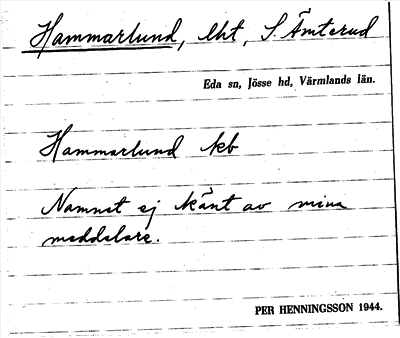 Hammarlund, lht, S. Ämterud
Eda sn, Jösse hd, Värmlands län.
Hammarlund kb
Namnet ej känt av mina
meddelare.
PER HENNINGSSON 1944.